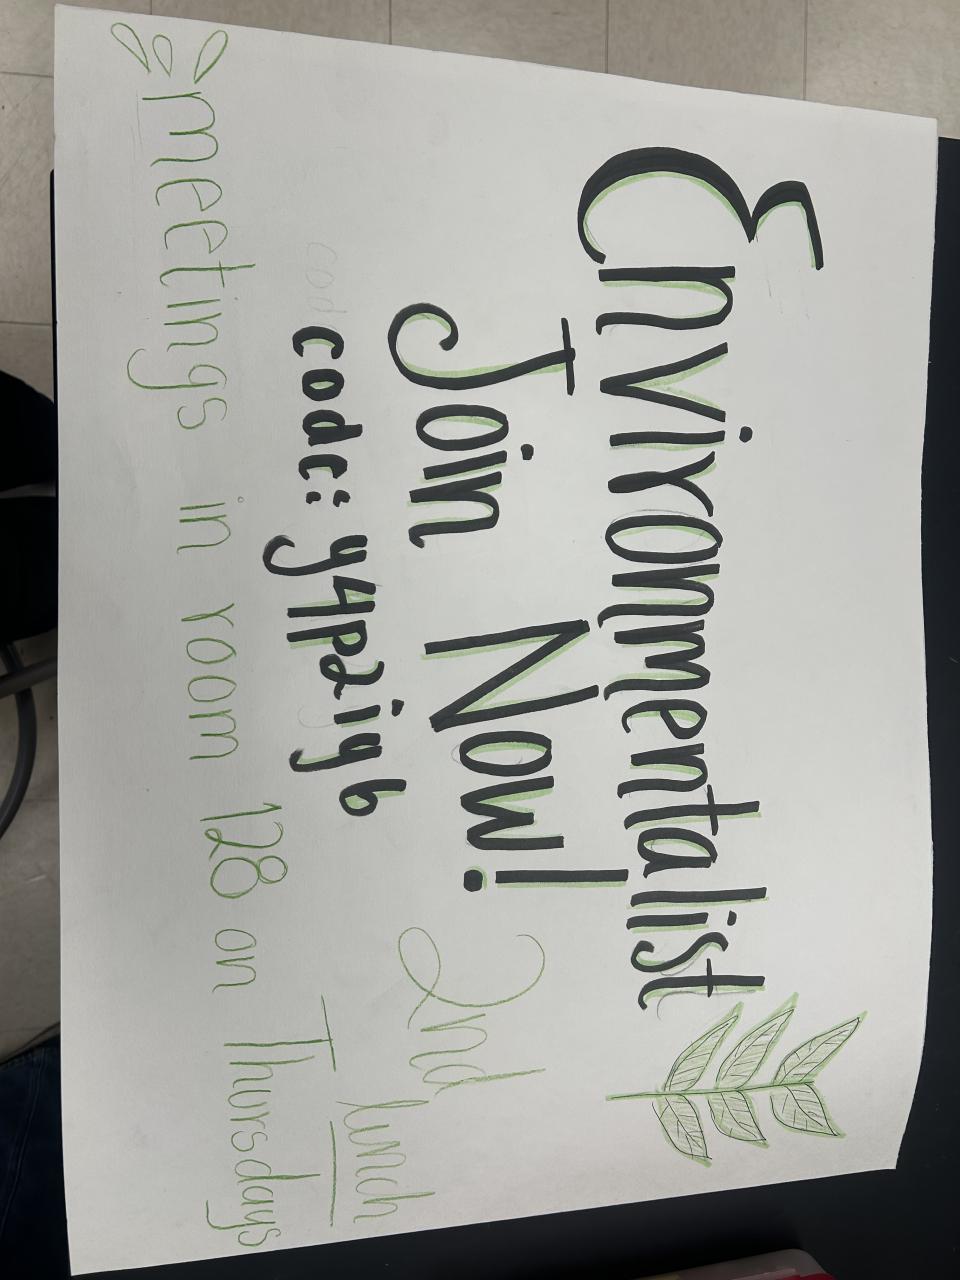 Environmentalist
Join Now!
code: y4pzigb
2nd lunch
meetings in room 128 on Thursdays